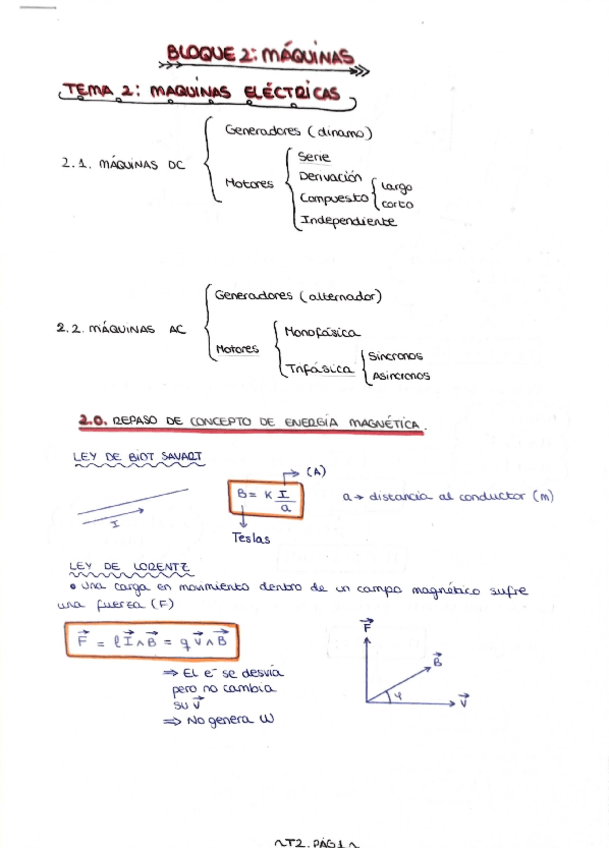 BLOQUE 2: MÁQUINAS
TEMA 2: MAQUINAS ELÉCTRICAS
2.1. MÁQUINAS DC
Generadores (dinamo)
Motores
Serie
Derivación
Compuesto
Largo
corto
Independiente
2.2. MÁQUINAS AC
Generadores (alternador)
Motores
Monofásica
Trifásica
Síncronos
Asíncronos
2.0. REPASO DE CONCEPTO DE ENERGÍA MAGNÉTICA.
LEY DE BIOT SAVART
I
(A)
B = K I/a
Teslas
a → distancia al conductor (m)
LEY DE LORENTZ
• Una carga en movimiento dentro de un campo magnético sufre
una fuerza (F)
F⃗ = l I⃗ ∧ B⃗ = q V⃗ ∧ B⃗
⇒ El e⁻ se desvía
pero no cambia
su v⃗
⇒ No genera W
F⃗
B⃗
φ
V⃗
T2. PÁG 1